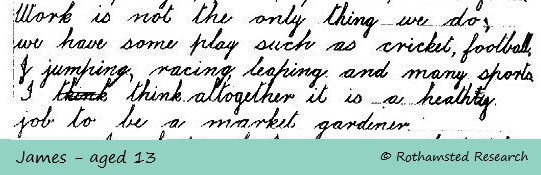 Work is not the only thing we do,
we have some play such as cricket, football,
I jumping, racing leaping and many sports
I think think altogether it is a healthy
job to be a market gardener
James - aged 13
© Rothamsted Research